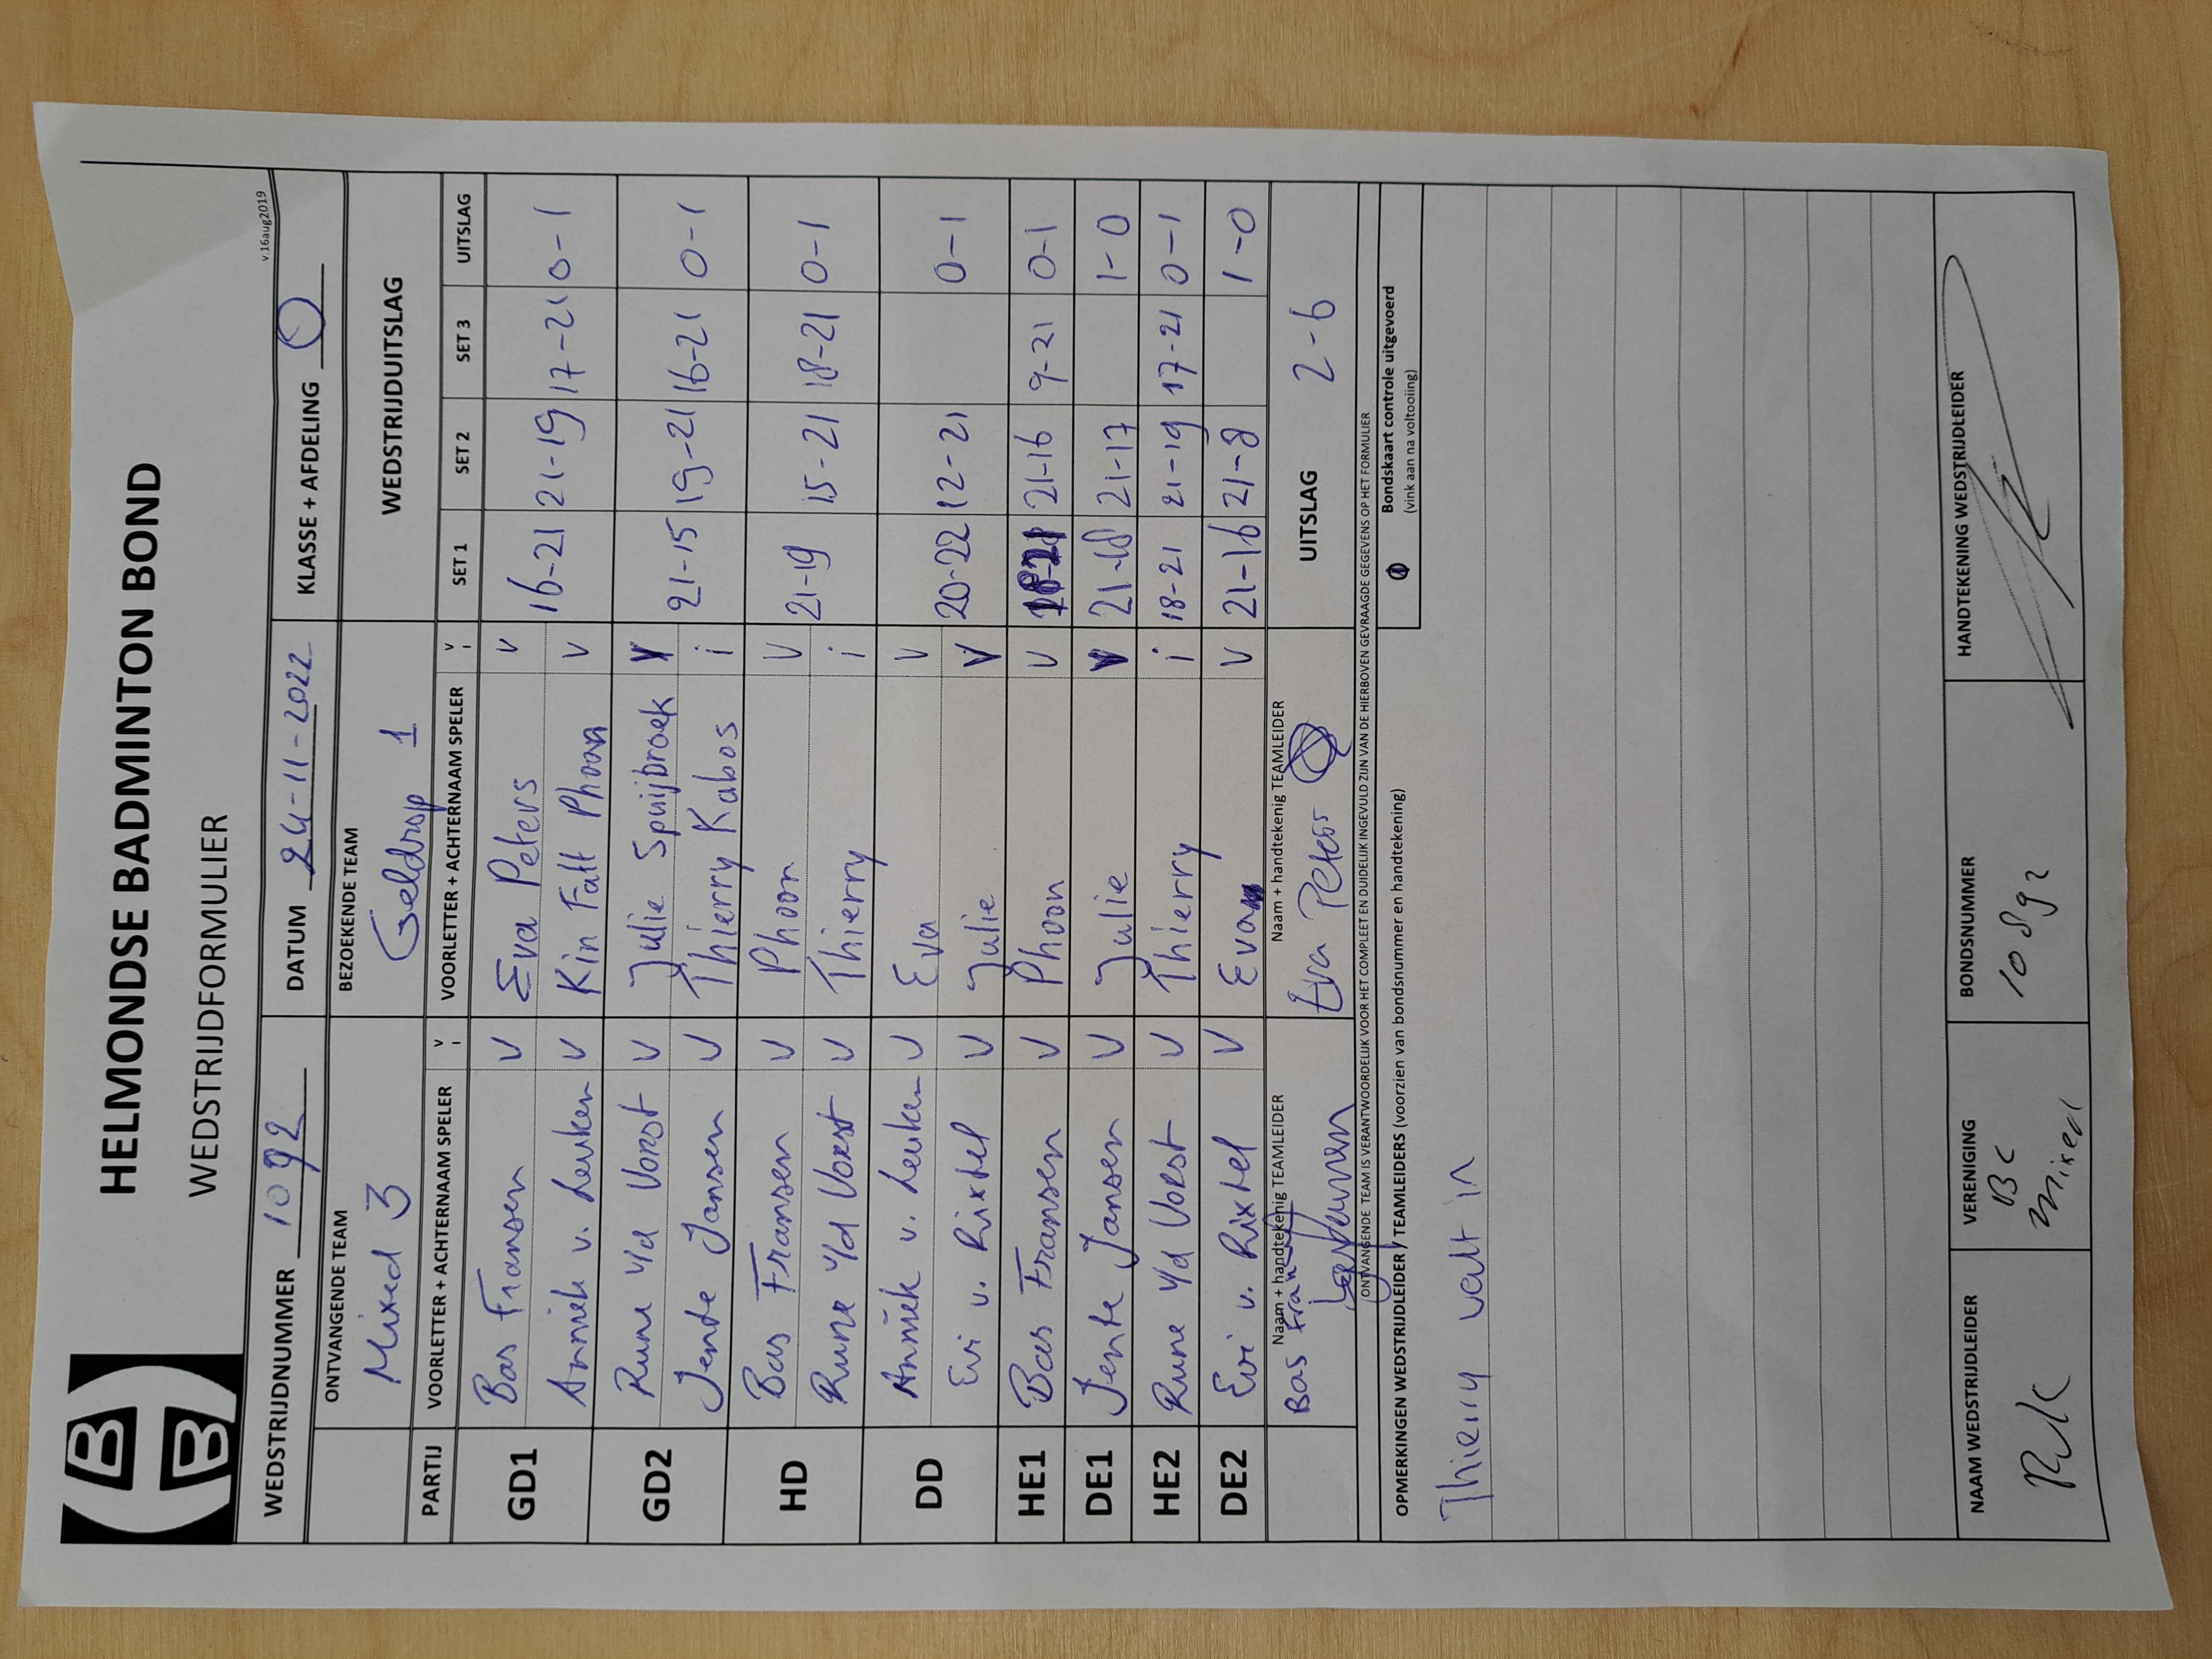 HELMONDSE BADMINTON BOND
WEDSTRIJDFORMULIER
v.16aug2019
WEDSTRIJDNUMMER 1092 DATUM 24-11-2022 KLASSE + AFDELING O
ONTVANGENDE TEAM BEZOEKENDE TEAM WEDSTRIJDUITSLAG
Mixed 3 Geldrop 1
PARTIJ VOORLETTER + ACHTERNAAM SPELER v i VOORLETTER + ACHTERNAAM SPELER v i SET 1 SET 2 SET 3 UITSLAG
GD1 Bas Fransen V Eva Peters V 16-21 21-19 17-21 0-1
Anniek v. Leuken V Kin Fatt Phoon V
GD2 Rune v/d Vorst V Julie Spuijbroek V 21-15 19-21 16-21 0-1
Jente Jansen V Thierry Kabos i
HD Bas Fransen V Phoon V 21-19 15-21 18-21 0-1
Rune v/d Vorst V Thierry i
DD Anniek v. Leuken V Eva V 20-22 12-21 0-1
Evi v. Rixtel V Julie V
HE1 Bas Fransen V Phoon V 18-21 21-16 9-21 0-1
DE1 Jente Jansen V Julie V 21-18 21-17 1-0
HE2 Rune v/d Vorst V Thierry i 18-21 21-19 17-21 0-1
DE2 Evi v. Rixtel V Eva V 21-16 21-8 1-0
Naam + handtekenig TEAMLEIDER Naam + handtekenig TEAMLEIDER UITSLAG 2-6
Bas Fransen Eva Peters
ONTVANGENDE TEAM IS VERANTWOORDELIJK VOOR HET COMPLEET EN DUIDELIJK INGEVULD ZIJN VAN DE HIERBOVEN GEVRAAGDE GEGEVENS OP HET FORMULIER
Bondskaart controle uitgevoerd
(vink aan na voltooiing)
OPMERKINGEN WEDSTRIJDLEIDER / TEAMLEIDERS (voorzien van bondsnummer en handtekening)
Thierry valt in
NAAM WEDSTRIJDLEIDER VERENIGING BONDSNUMMER HANDTEKENING WEDSTRIJDLEIDER
BC 10892
Mixed